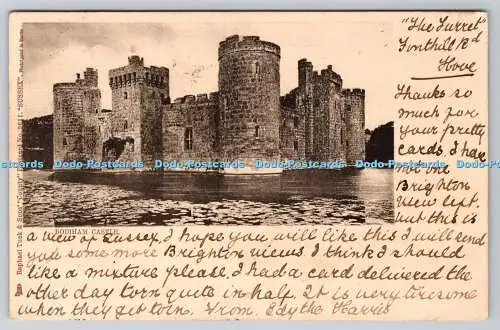 "The Turret"
Fonthill Rd
Hove
Thanks so
much for
your pretty
cards. I have
not one
Brighton
view left
but this is
a view of Sussex, I hope you will like this I will send
you some more Brighton views. I think I should
like a mixture please. I had a card delivered the
other day torn quite in half. It is very tiresome
when they get torn. From. Edythe Harris
BODIHAM CASTLE.
Raphael Tuck & Sons' "SUSSEX"
Dodo-postcards.co.uk Dodo-postcards.co.uk Dodo-postcards.co.uk Dodo-postcards.co.uk Dodo-postcards.co.uk